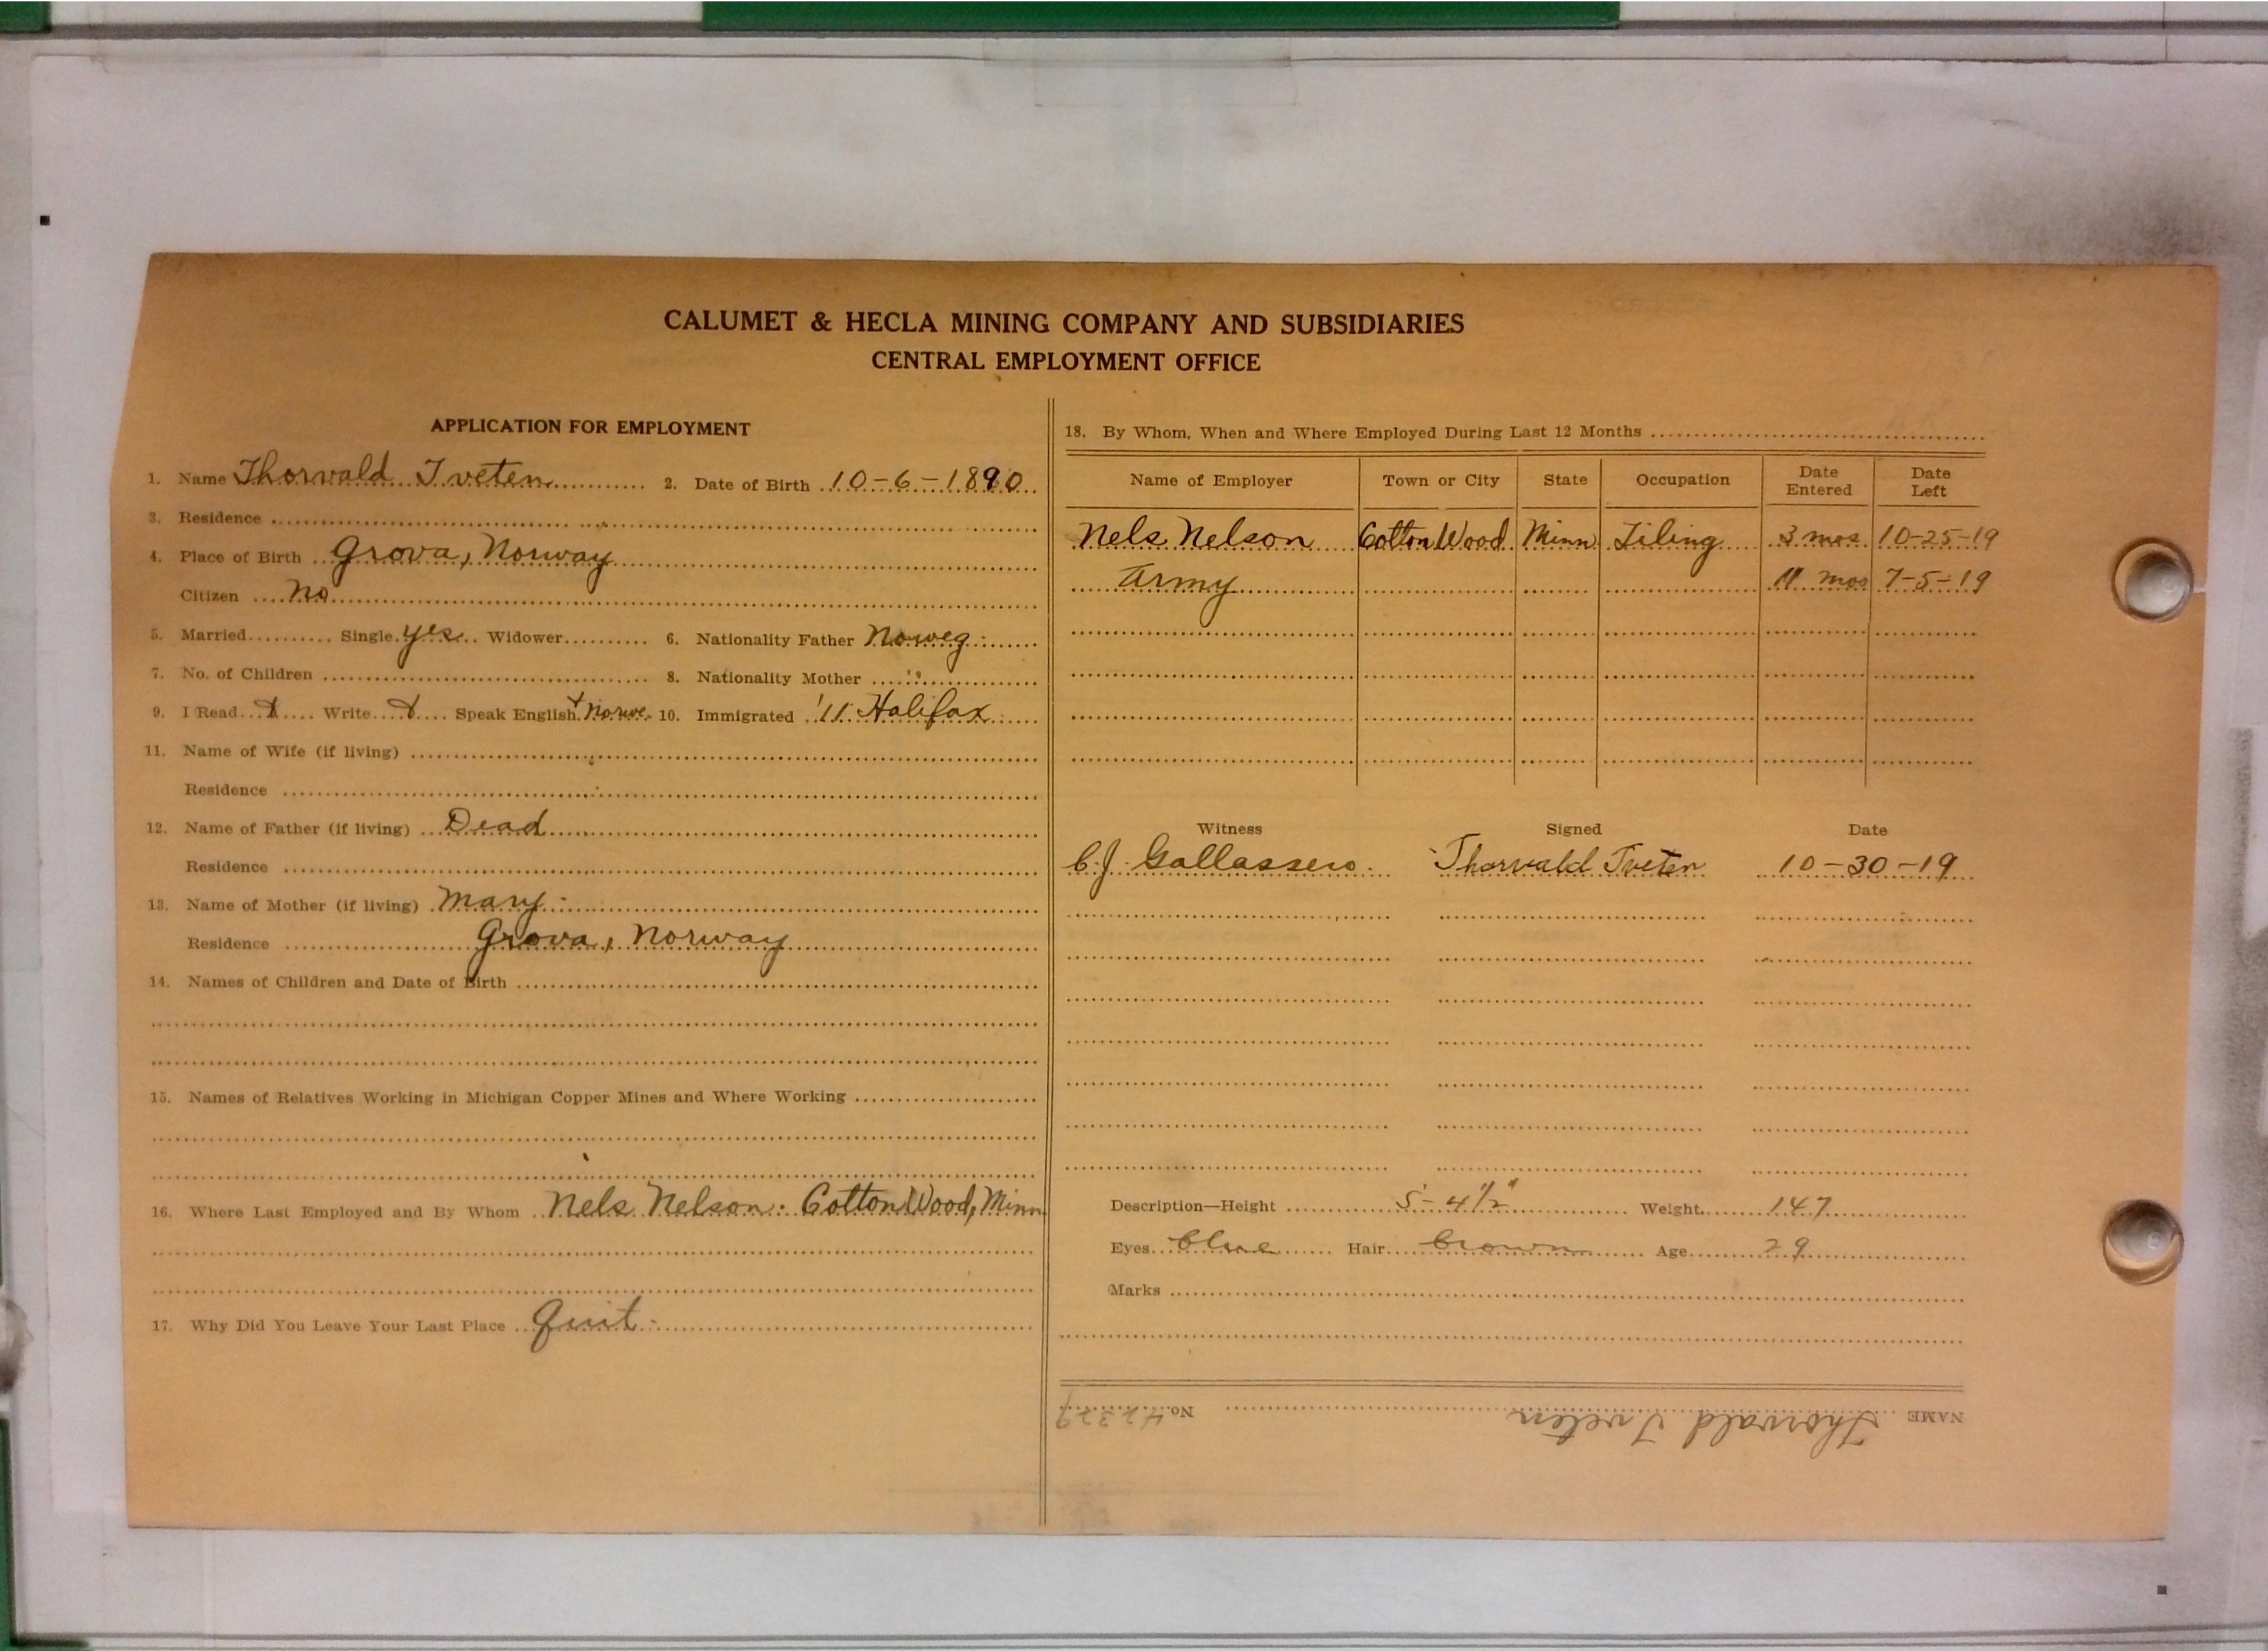 CALUMET & HECLA MINING COMPANY AND SUBSIDIARIES
CENTRAL EMPLOYMENT OFFICE
APPLICATION FOR EMPLOYMENT
1. Name Thorvald Tveten 2. Date of Birth 10-6-1890
3. Residence
4. Place of Birth Grova, Norway
Citizen No
5. Married Single yes Widower 6. Nationality Father Norweg.
7. No. of Children 8. Nationality Mother "
9. I Read X Write X Speak English + Norwe. 10. Immigrated '11 Halifax
11. Name of Wife (if living)
Residence
12. Name of Father (if living) Dead
Residence
13. Name of Mother (if living) Mary
Residence Grova, Norway
14. Names of Children and Date of Birth
15. Names of Relatives Working in Michigan Copper Mines and Where Working
16. Where Last Employed and By Whom Nels Nelson. Cotton Wood, Minn
17. Why Did You Leave Your Last Place Quit
18. By Whom, When and Where Employed During Last 12 Months
Name of Employer Town or City State Occupation Date Entered Date Left
Nels Nelson Cotton Wood Minn Tiling 3 mos 10-25-19
Army 11 mos 7-5-19
Witness Signed Date
C.J. Thorvald Tveten 10-30-19
Description—Height 5'-4 1/2" Weight 147
Eyes blue Hair brown Age 29
Marks
NAME Thorvald Tveten No. 42329